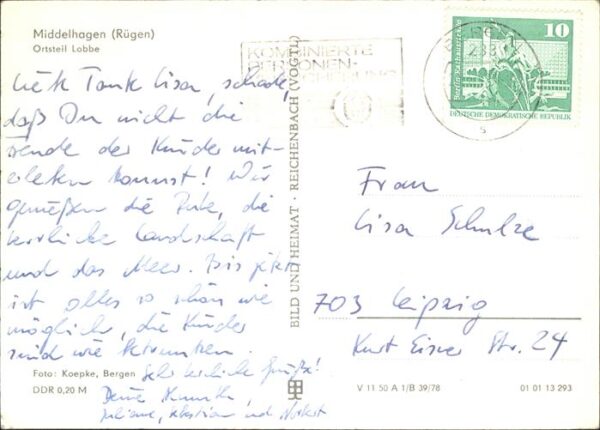 Middelhagen (Rügen)
Ortsteil Lobbe
Tante Lisa, schade,
daß Du nicht die
der Kinder mit-
erleben kannst! Wir
genießen die Ruhe, die
herrliche Landschaft
und das Meer. Bis jetzt
ist alles so schön wie
möglich, die Kinder
sind wie
Sehr herzliche Grüße!
Deine
Juliane, Sebastian und Norbert
Foto: Koepke, Bergen
DDR 0,20 M
BILD UND HEIMAT · REICHENBACH (VOGTL)
KOMBINIERTE
PERSONEN-
10
Berlin-Rathausstraße
DEUTSCHE DEMOKRATISCHE REPUBLIK
Frau
Lisa Schulze
703 Leipzig
Kurt Eisner Str. 24
V 11 50 A 1/B 39/78
01 01 13 293